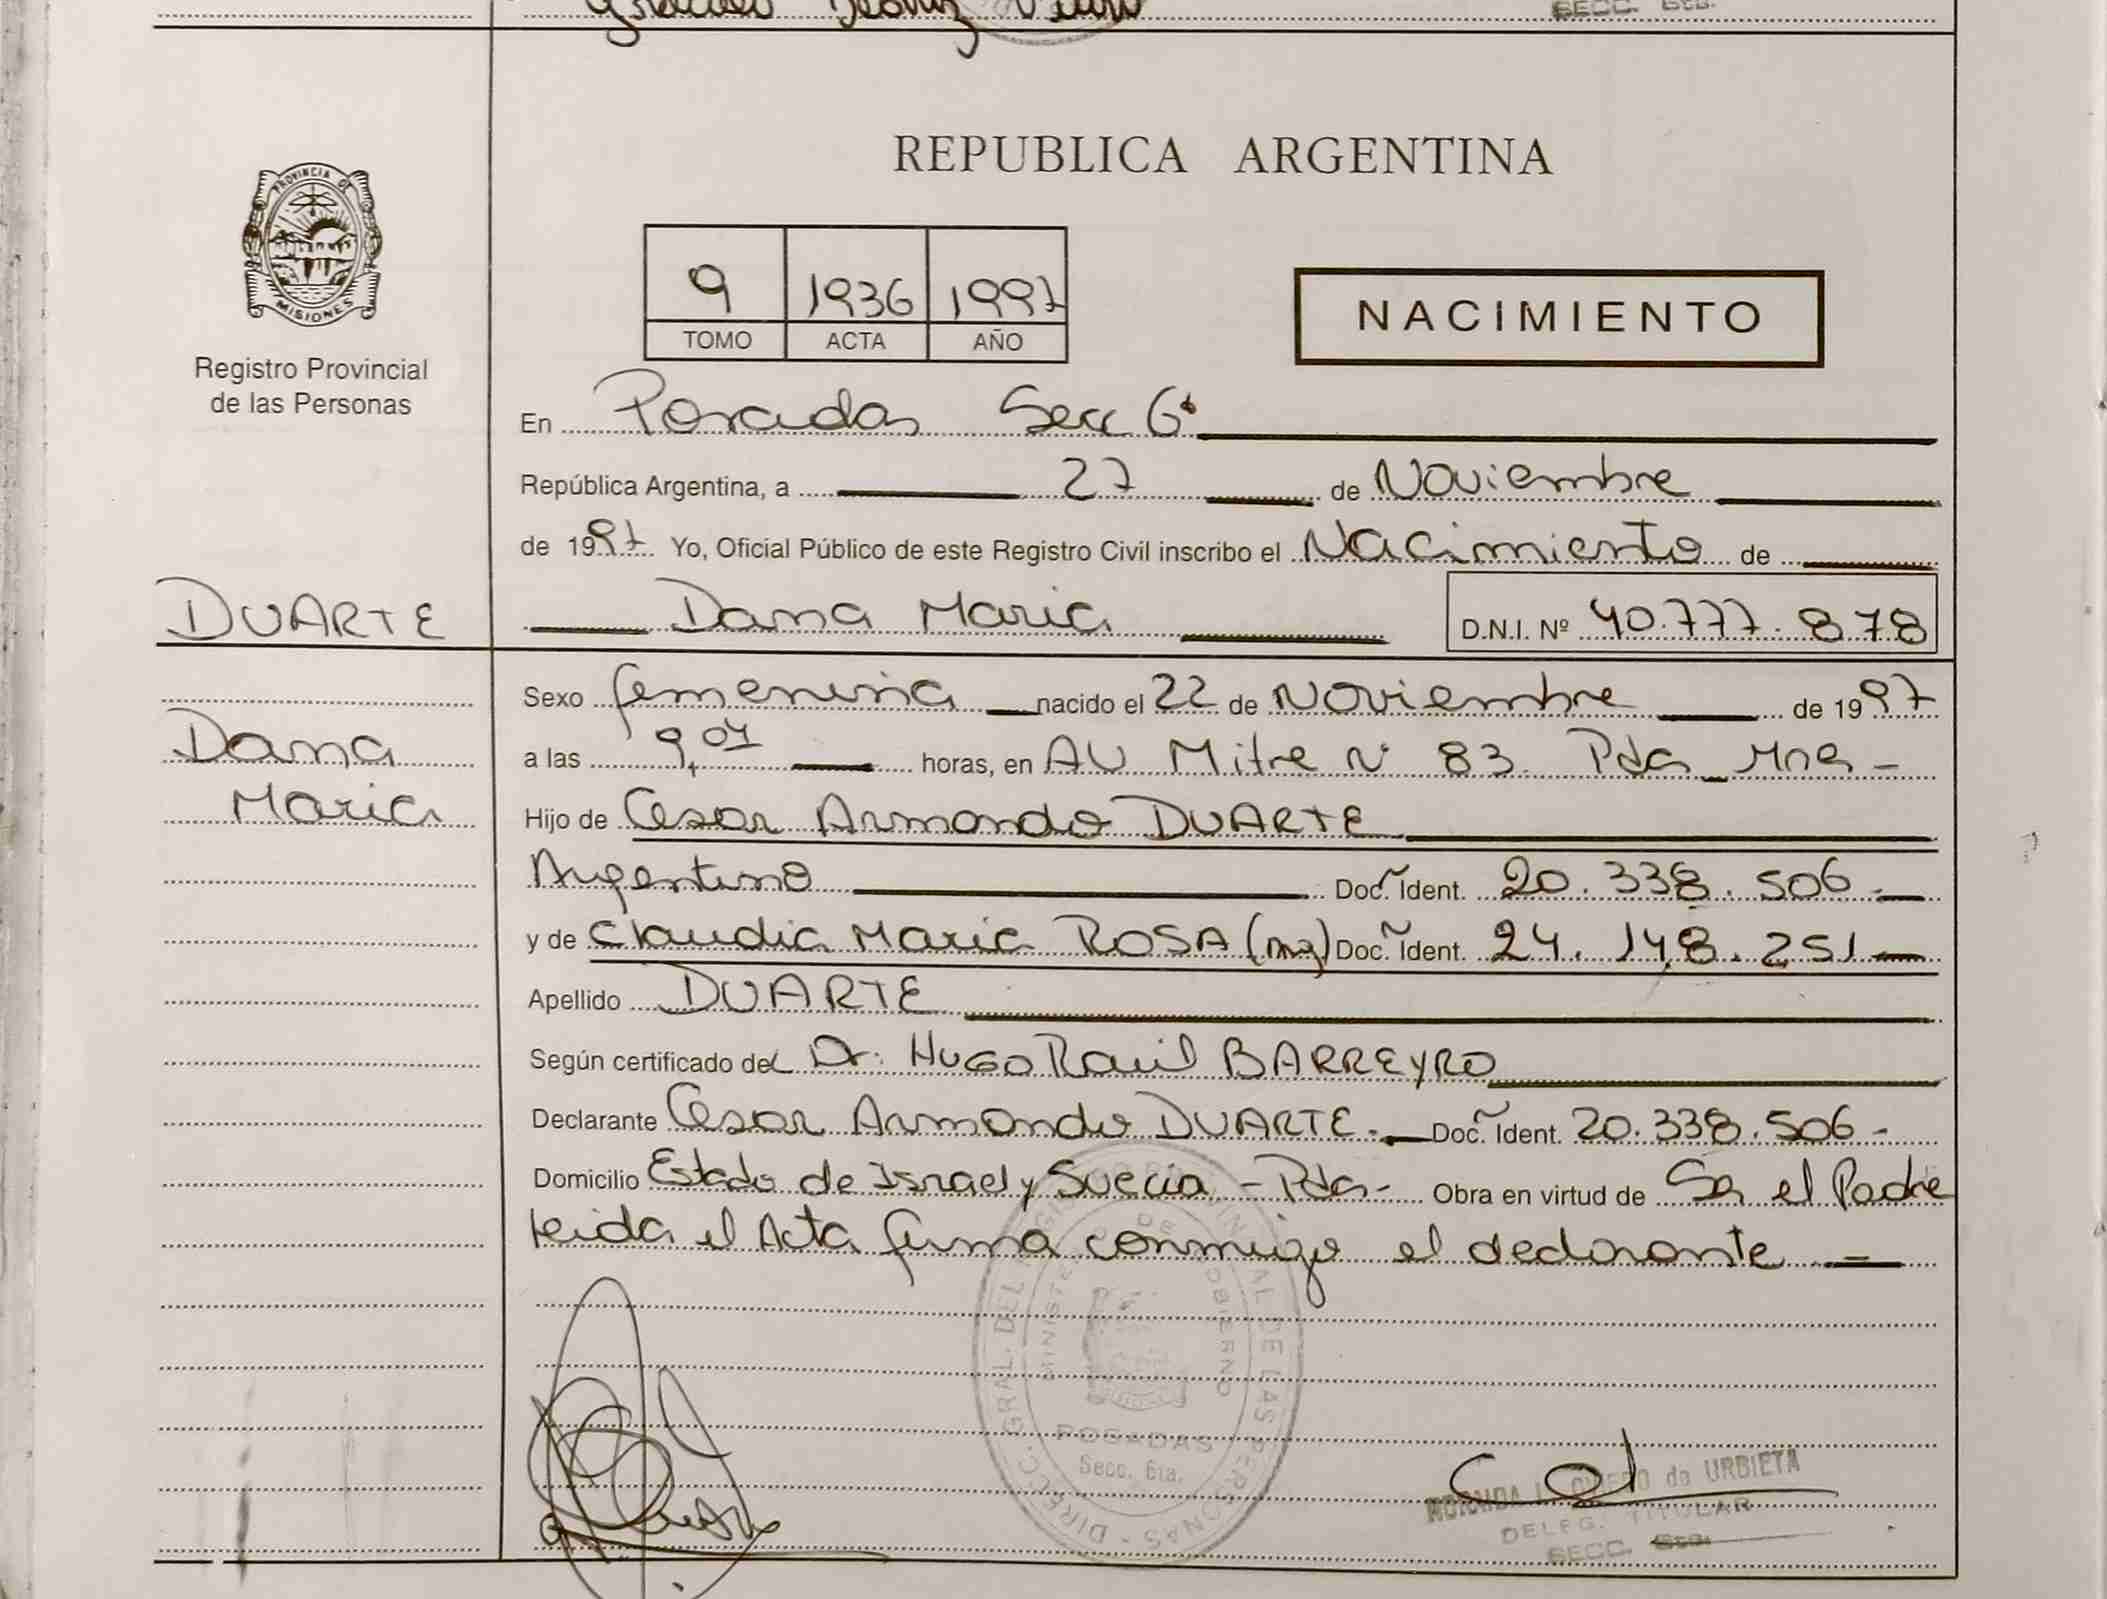 SECC. 6ta.
PROVINCIA DE
MISIONES
Registro Provincial
de las Personas
REPUBLICA ARGENTINA
9 1936 1997
TOMO ACTA AÑO
NACIMIENTO
En Posadas Secc 6ª
República Argentina, a 27 de Noviembre
de 1997 Yo, Oficial Público de este Registro Civil inscribo el Nacimiento de
DUARTE
Dana Maria D.N.I. Nº 40.777.878
Sexo femenina nacido el 22 de Noviembre de 1997
Dana
Maria
a las 9,07 horas, en AV Mitre Nº 83. Pdas Mnes -
Hijo de Cesar Armando DUARTE
Argentino Doc. Ident. 20.338.506.-
y de Claudia Maria ROSA Doc. Ident. 24.148.251-
Apellido DUARTE
Según certificado del Dr. Hugo Raul BARREYRO
Declarante Cesar Armando DUARTE.- Doc. Ident. 20.338.506-
Domicilio Estado de Israel y Suecia - Pdas- Obra en virtud de Ser el Padre
leida el Acta firma conmigo el declarante
DIRECC. GRAL. DEL REGISTRO PROVINCIAL DE LAS PERSONAS -
MINISTERIO DE GOBIERNO
POSADAS
Secc. 6ta.
de URBIETA
DELEG. TITULAR
SECC. 6ta.